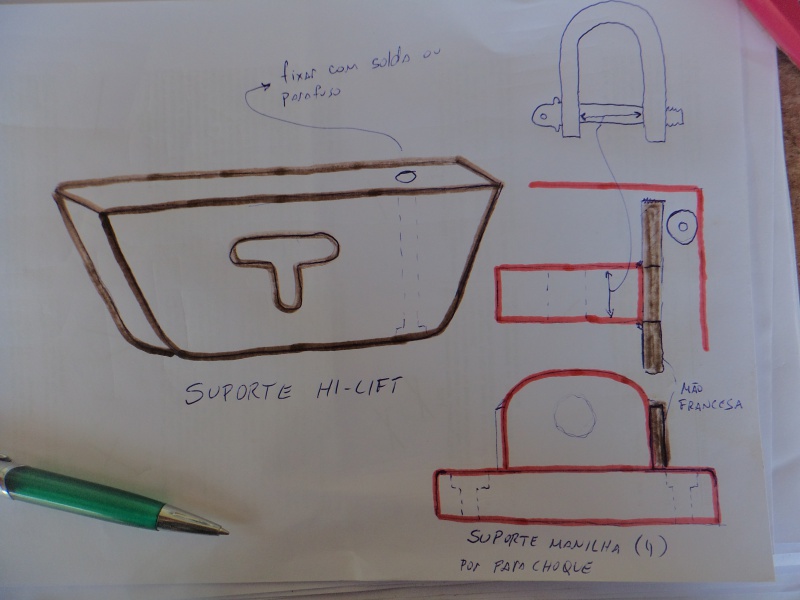 fixar com solda ou
parafuso
SUPORTE HI-LIFT
MÃO
FRANCESA
SUPORTE MANILHA (4)
POR PARA CHOQUE